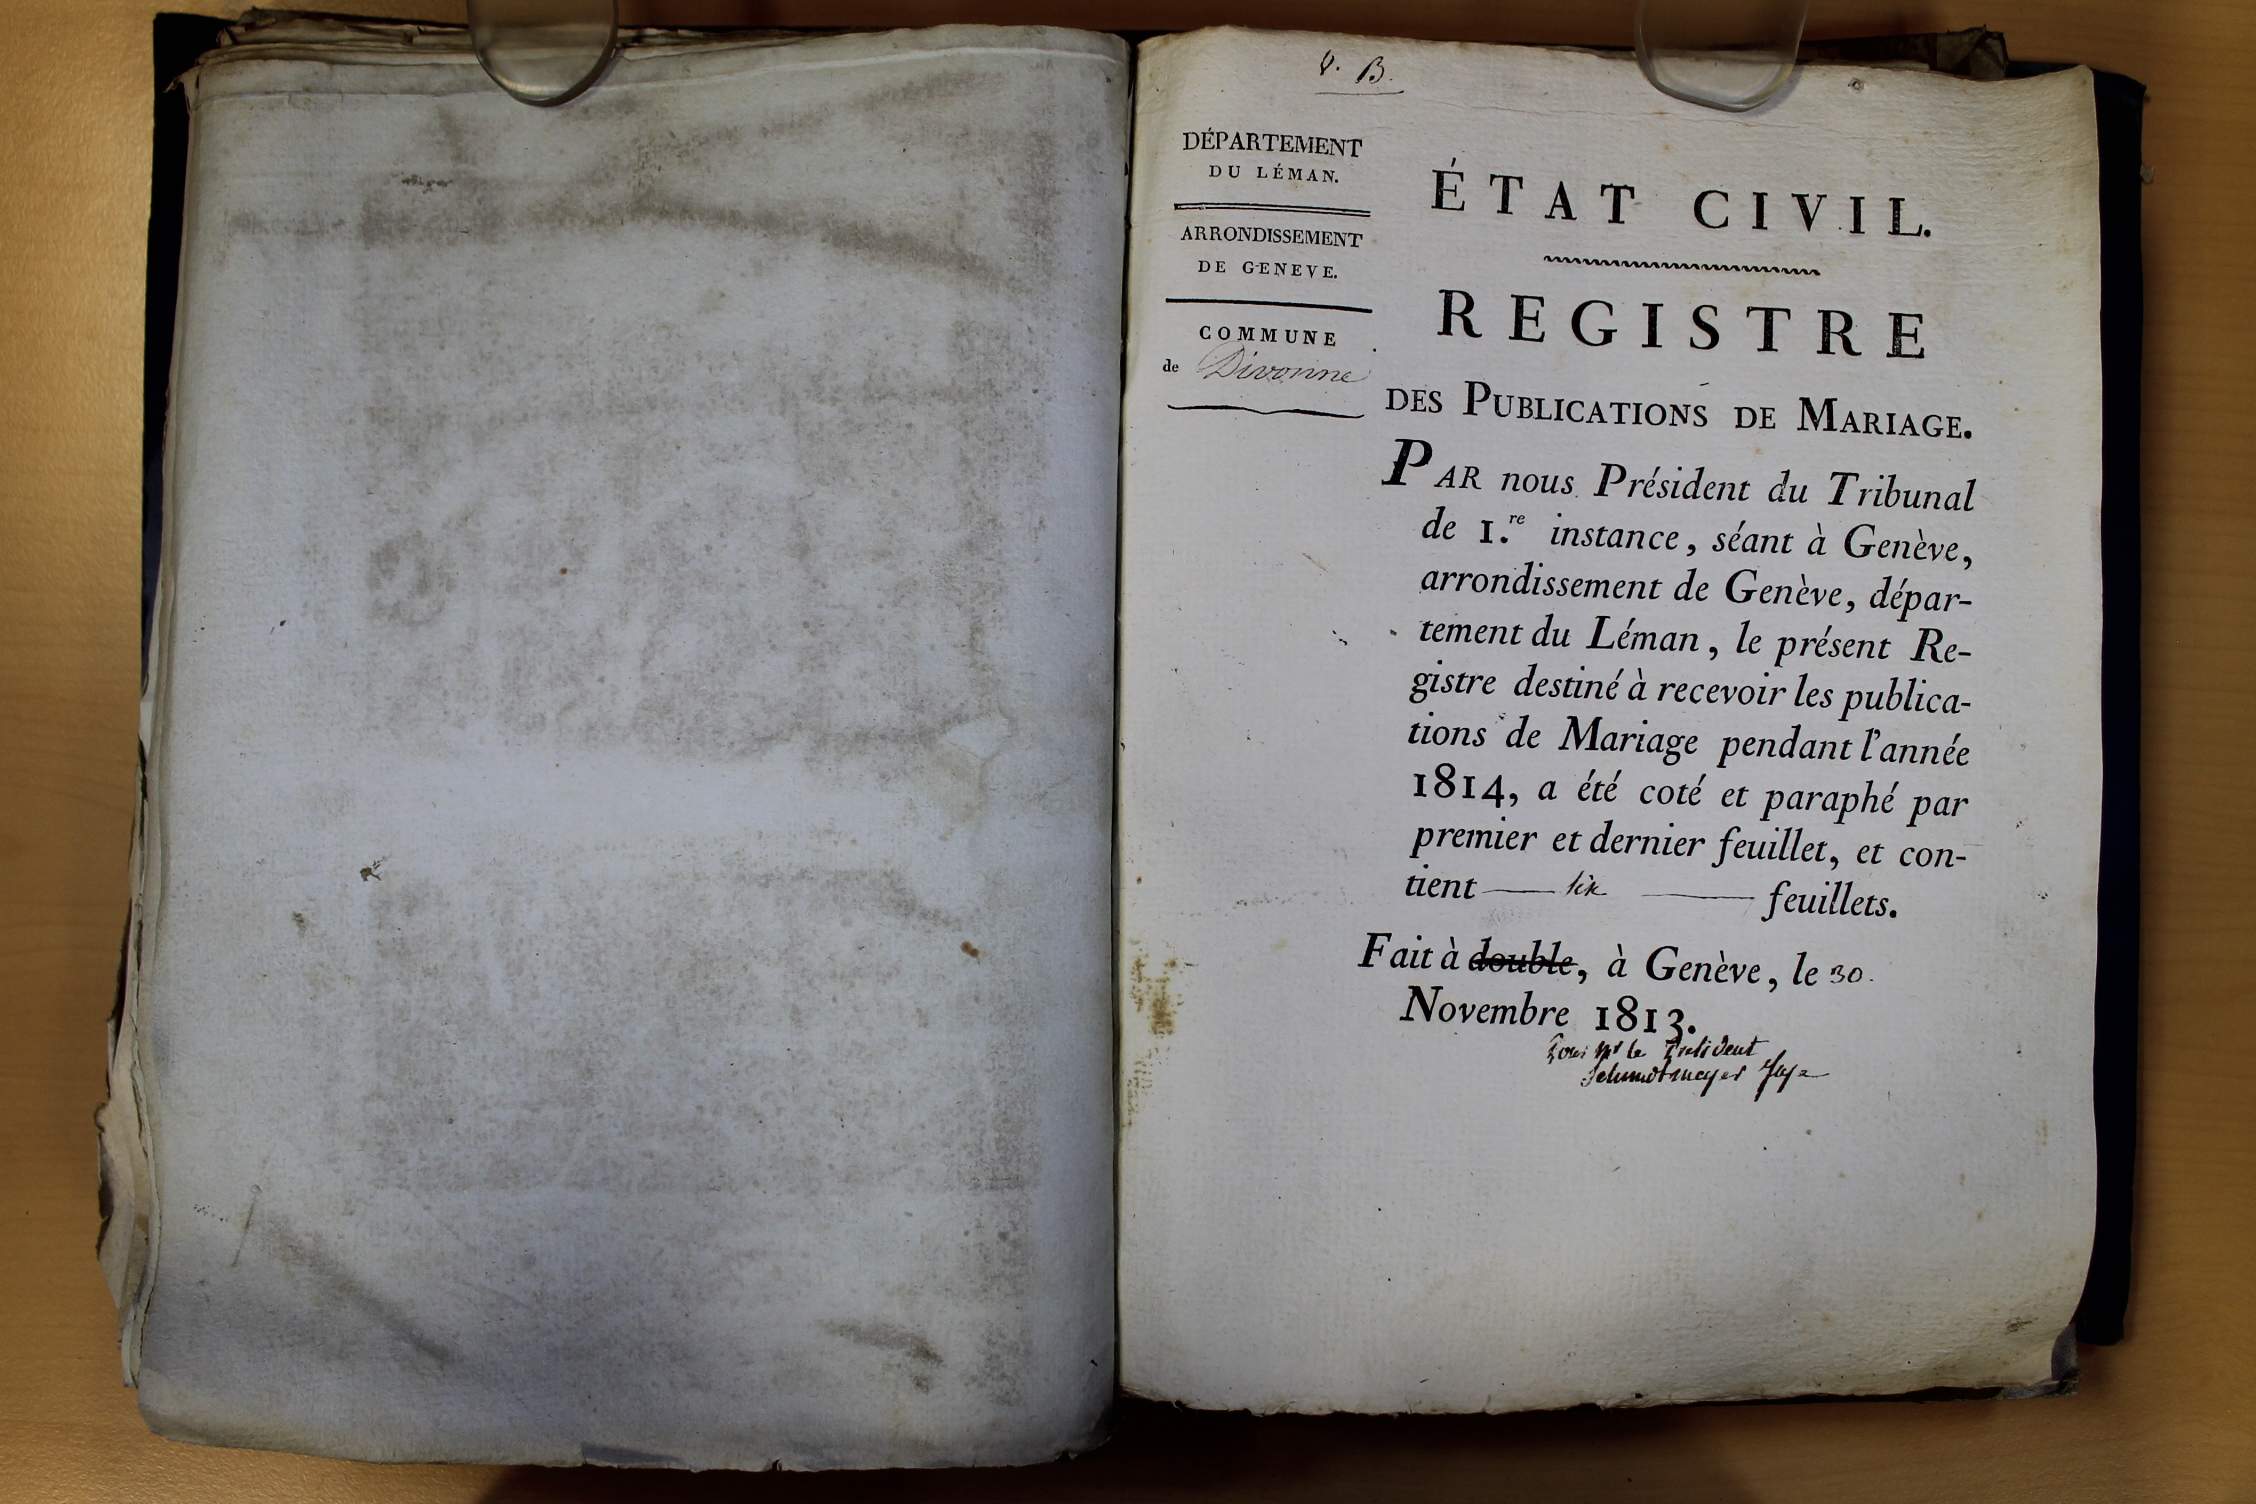 V. B.
DÉPARTEMENT
DU LÉMAN.
ARRONDISSEMENT
DE GENEVE.
COMMUNE
de Divonne
ÉTAT CIVIL.
REGISTRE
DES PUBLICATIONS DE MARIAGE.
PAR nous Président du Tribunal
de 1.re instance, séant à Genève,
arrondissement de Genève, dépar-
tement du Léman, le présent Re-
gistre destiné à recevoir les publica-
tions de Mariage pendant l'année
1814, a été coté et paraphé par
premier et dernier feuillet, et con-
tient six feuillets.
Fait à double, à Genève, le 30.
Novembre 1813.
Pour Mr le President
Schmidtmeyer Juge